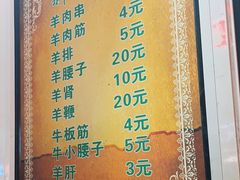 羊肉串 4元
羊肉筋 5元
羊排 20元
羊腰子 10元
羊肾 20元
羊鞭 4元
牛板筋 5元
牛小腰子 3元
羊肝